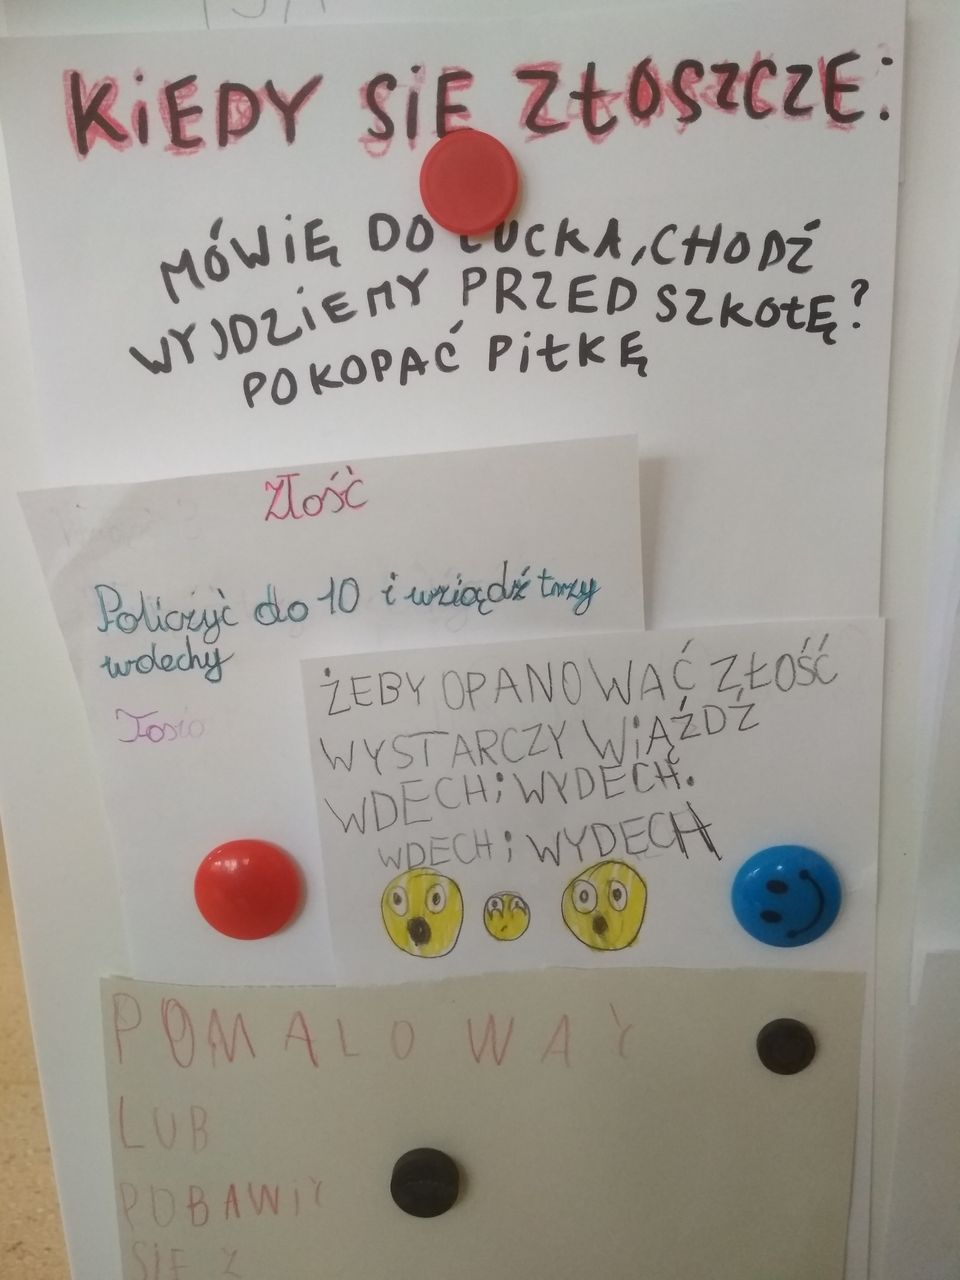 KiEDY SiĘ ZŁOSZCZĘ:
MÓWiĘ DO ŁUCKA, CHODŹ
WYJDZiEMY PRZED SZKOŁĘ?
POKOPAĆ PiŁKĘ
Złość
Policzyć do 10 i wziąćdź trzy
wdechy
Tosia
ŻEBY OPANOWAĆ ZŁOŚĆ
WYSTARCZY WiĄŹDŹ
WDECH i WYDECH.
WDECH i WYDECH
POMALOWAĆ
LUB
POBAWiĆ
SIĘ Z